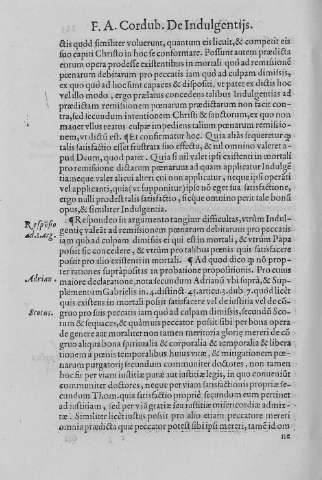 F. A. Cordub. De Indulgentijs.
ctis quòd similiter voluerunt, quantum eis licuit, & competit eis
suo capiti Christo in hoc se conformare. Possunt autem prædicta
eorum opera prodesse existentibus in mortali quo ad remissionē
pœnarum debitarum pro peccatis iam quo ad culpam dimissis,
ex quo quo ad hoc sunt capaces & dispositi. vt patet ex dictis hoc
vel illo modo, ergo prælatus concedens talibus Indulgentias ad
prædictam remissionem pœnarum prædictarum non facit con-
tra, sed secundum intentionem Christi & sanctorum, ex quo non
manet vllus reatus culpæ impediens talium pœnarum remissio-
nem, vt dictū est. ¶ Et confirmatur hoc. Quia aliàs sequeretur q̃
talis satisfactio esset frustrata suo effectu, & nil omnino valeret a-
pud Deum, quod patet. Quia si nil valet ipsi existenti in mortali
pro remissione dictarum pœnarum ad quam applicatur Indulgē
tia: neque valet alicui alteri cui non applicatur, neque ipsi operāti
vel applicanti, quia (vt supponitur) ipse nō eget sua satisfactione,
ergo nulli prodest talis satisfactio, sicque omnino perit tale bonū
opus, & similiter Indulgentia.
Respōsio ad .2. arg.
¶ Respondeo in argumento tangitur difficultas, vtrùm Indul-
gentię valeāt ad remissionem pœnarum debitarum pro peccatis
iam quò ad culpam dimissis ei qui est in mortali, & vtrùm Papa
possit sic concedere, & vtrùm pro talibus pœnis quis satisfacere
possit pro alio existenti in mortali. ¶ Ad quod dico q̃ nō prop-
ter rationes suprà positas in probatione propositionis. Pro cuius
Adrian.
maiore declaratione, nota secundum Adrianū vbi suprà, & Sup-
plementum Gabrielis in .4. distinct. 45. articu. 3. dub. 7. quòd licèt
quis existens in mortali possit satisfacere vel de iustitia vel de cō-
Scotus.
gruo pro suis peccatis iam quò ad culpam dimissis, secundū Sco-
tum & sequaces, & quāmuis peccator possit sibi per bona opera
de genere aut moraliter non tamen meritoria glorię mereri de cō
gruo aliqua bona spiritualia & corporalia & temporalia & libera
tionem à pœnis temporalibus huius vitæ, & mitigationem pœ-
narum purgatorij secundum communiter doctores, non tamen
hoc sit per viam iustitiæ puræ aut iustitiæ legis, in quo conueniūt
communiter doctores, neque per viam satisfactionis propriæ se-
cundum Thom. quia satisfactio propriè secundum eum pertinet
ad iustitiam, sed per viā gratiæ seu iustitiæ misericordiæ admix-
tæ. Similiter licèt iustus possit pro alio etiam peccatore mereri
omnia prædicta quæ peccator potest sibi ipsi mereri, tamē id om
ne